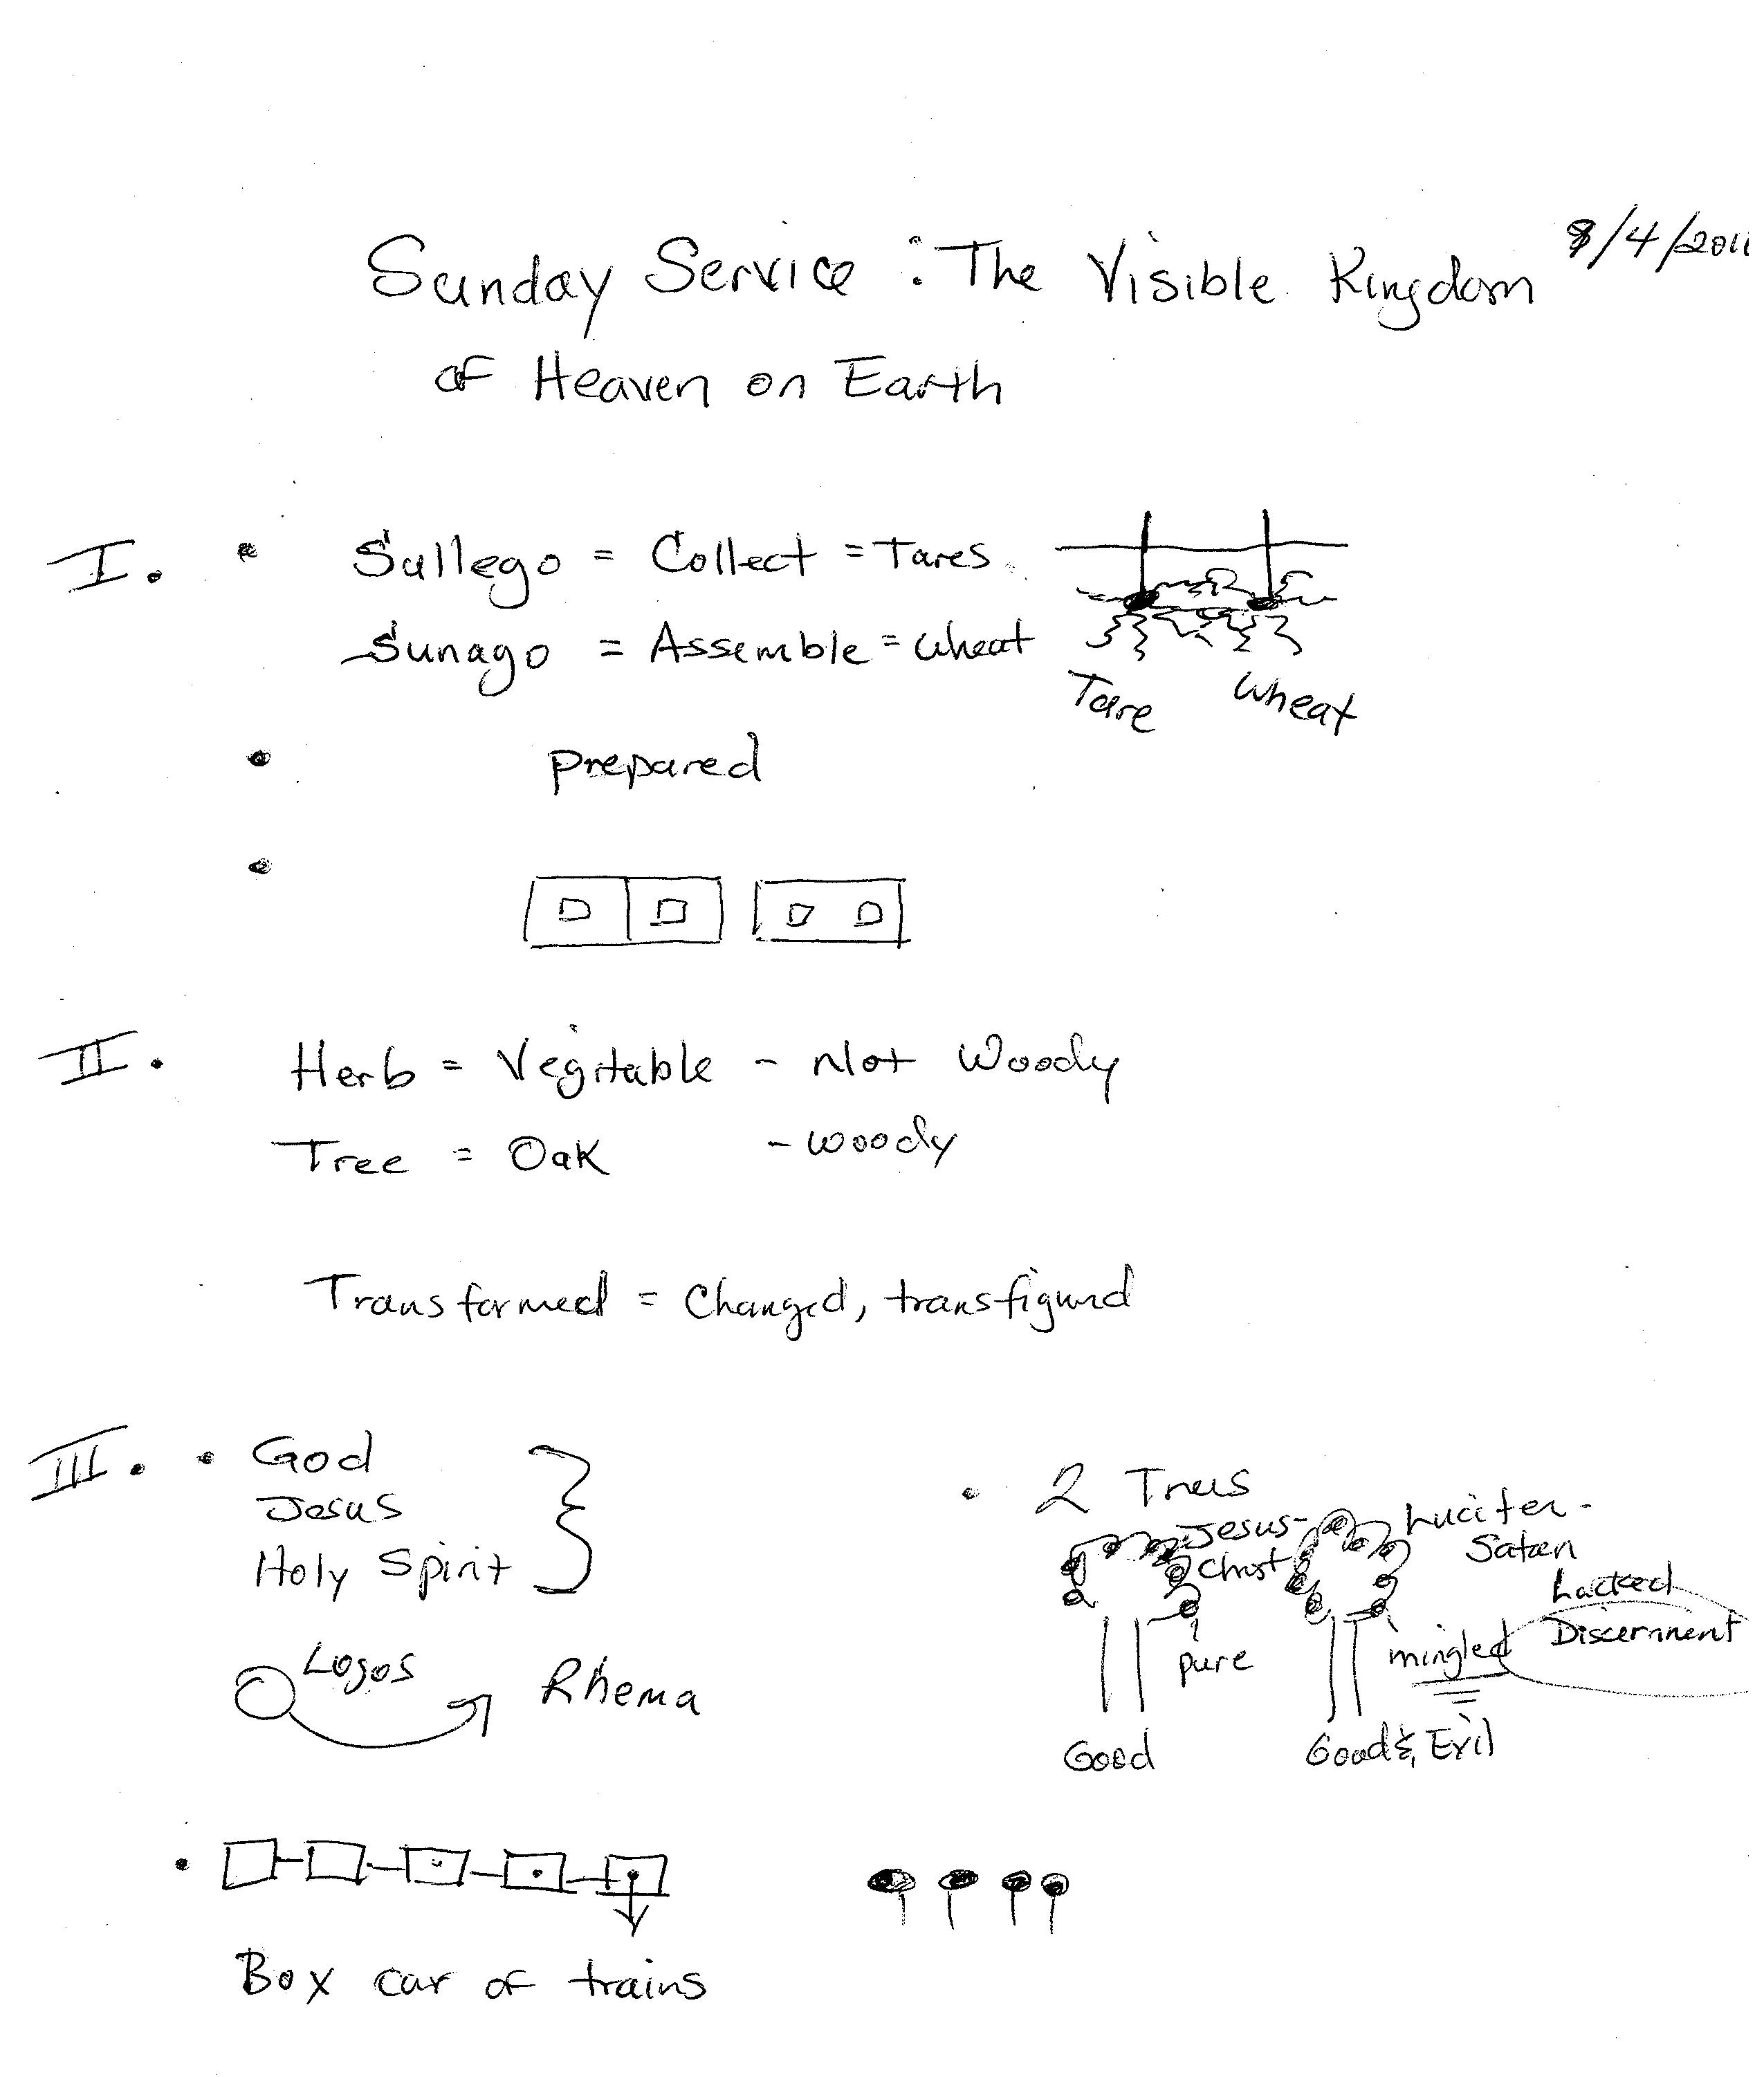 Sunday Service : The Visible Kingdom
of Heaven on Earth
I. • Sullego = Collect = Tares
Sunago = Assemble = wheat
Tare wheat
• prepared
•
II. Herb = Vegitable - Not Woody
Tree = Oak - woody
Transformed = Changed, transfigured
III. • God
Jesus
Holy Spirit
Logos Rhema
• 2 Trees
Jesus-
Christ
Lucifer-
Satan
Lacked
Discernment
pure
mingled
Good
Good & Evil
•
Box car of trains